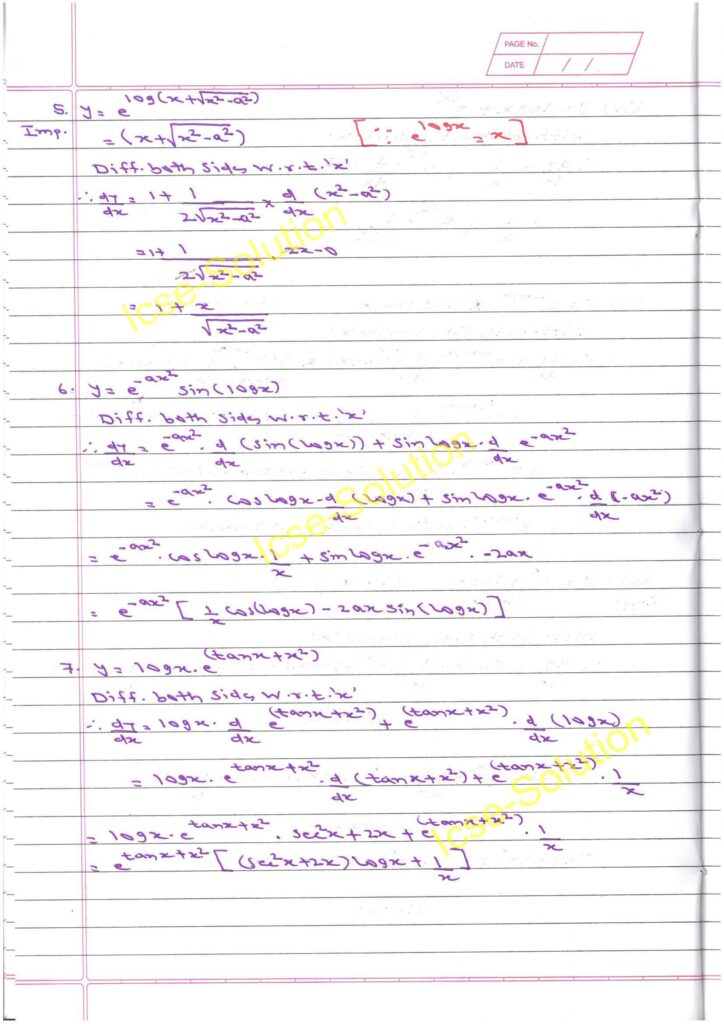 PAGE No.
DATE / /
5. y = e^log(x+√x²-a²)
Imp. = (x+√x²-a²) [∵ e^logx = x]
Diff. both sides w.r.t. 'x'
∴ dy/dx = 1 + 1/2√x²-a² × d/dx (x²-a²)
= 1 + 1/2√x²-a² · 2x-0
= 1 + x/√x²-a²
6. y = e^-ax² sin(logx)
Diff. both sides w.r.t. 'x'
∴ dy/dx = e^-ax² · d/dx (sin(logx)) + sin logx · d/dx e^-ax²
= e^-ax² · cos logx · d/dx (logx) + sin logx · e^-ax² · d/dx (-ax²)
= e^-ax² · cos logx · 1/x + sin logx · e^-ax² · -2ax
= e^-ax² [1/x cos(logx) - 2ax sin(logx)]
7. y = logx · e^(tanx+x²)
Diff. both sides w.r.t. 'x'
∴ dy/dx = logx · d/dx e^(tanx+x²) + e^(tanx+x²) · d/dx (logx)
= logx · e^tanx+x² · d/dx (tanx+x²) + e^(tanx+x²) · 1/x
= logx · e^tanx+x² · sec²x+2x + e^(tanx+x²) · 1/x
= e^tanx+x² [(sec²x+2x) logx + 1/x]
Icse-Solution
Icse-Solution
Icse-Solution